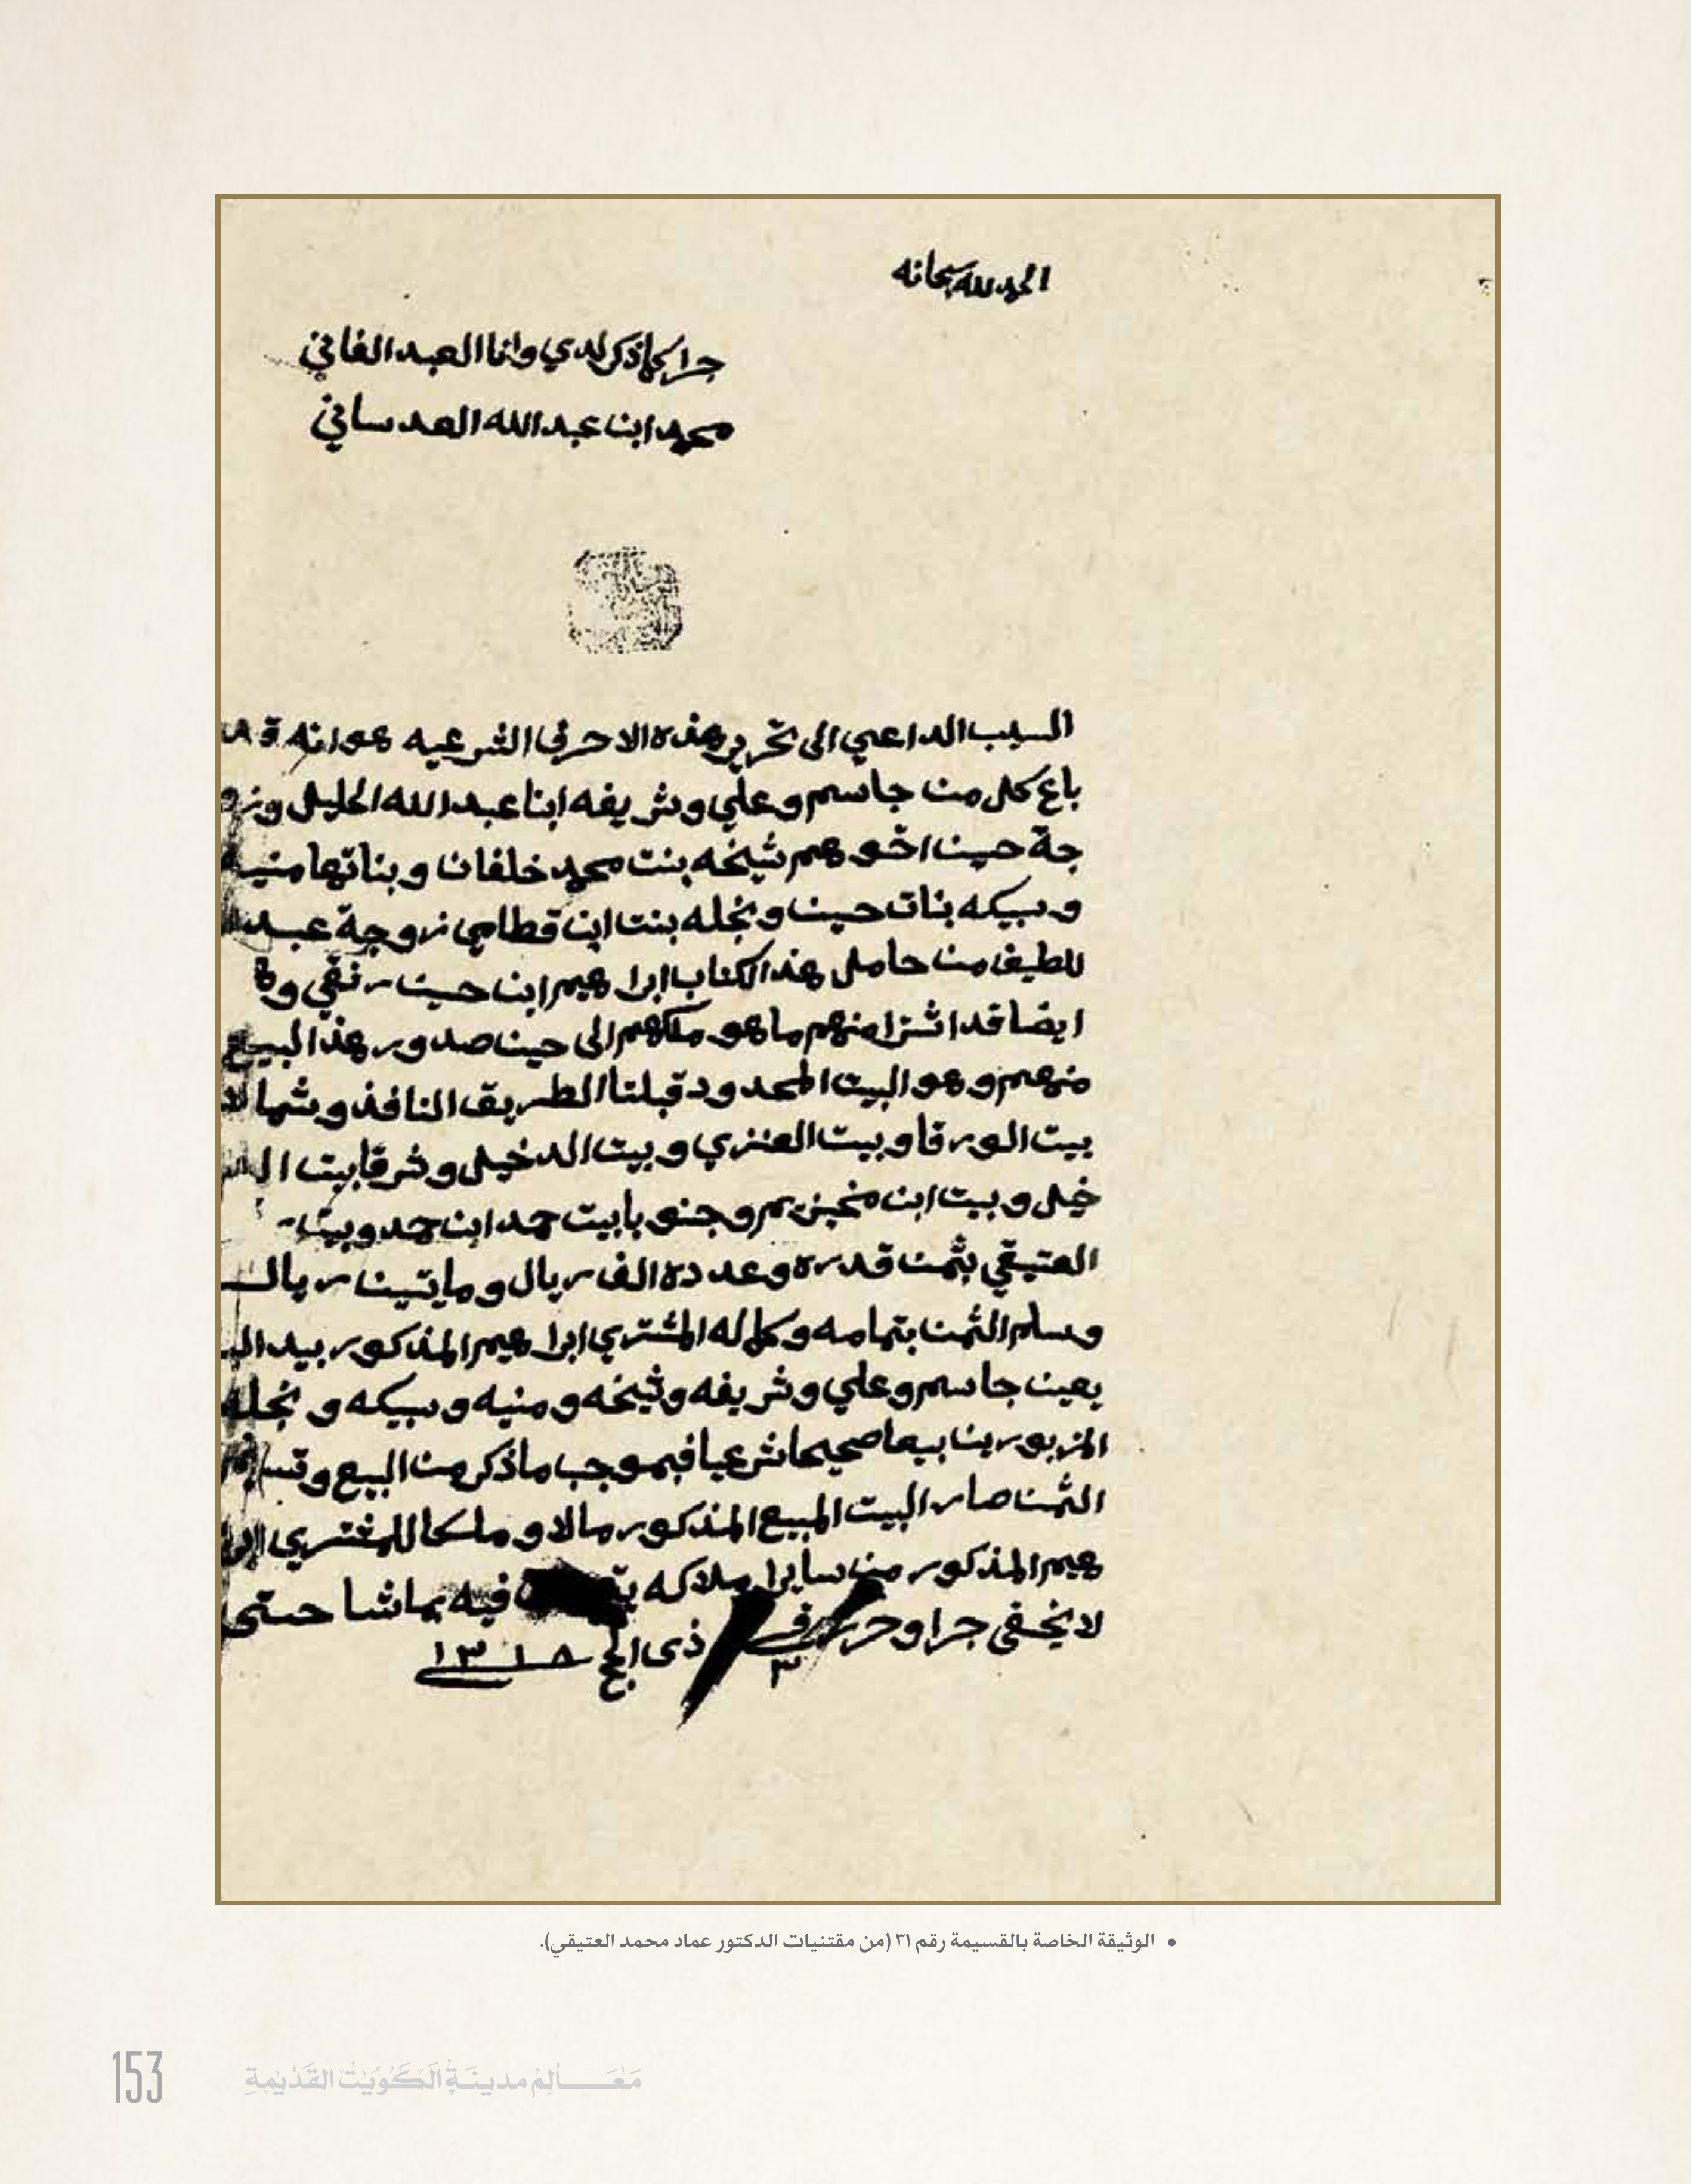 الحمد لله سبحانه
جرا كما ذكر لدي وانا العبد الفاني
محمد ابن عبدالله العدساني
السبب الداعي الى تحرير هذه الاحرف الشرعيه هو انه قد
باع كل من جاسم وعلي وشريفه ابنا عبدالله الخليل وزو
جة حسين اخوهم شيخه بنت محمد خلفان وبناتها منيه
وسبيكه بنات حسين ونجله بنت ابن قطامي زوجة عبد
للطيف من حامل هذا الكتاب ابراهيم ابن حسين
ايضا قد اشترا منهم ما هو ملكهم الى حين صدور هذا البيع
منهم وهو البيت المحدود قبلتا الطريق النافذ وشمالا
بيت الورقا وبيت العنزي وبيت الدخيل وشرقا بيت الد
خيل وبيت ابن مخيزيم وجنوبا بيت حمد ابن حمد وبيت
العتيقي بثمن قدره وعدده الف ريال وماتين ريال
وسلم الثمن بتمامه وكماله المشتري ابراهيم المذكور بيد البا
يعين جاسم وعلي وشريفه وشيخه ومنيه وسبيكه ونجله
المزبورين بيعا صحيحا شرعيا فبموجب ما ذكر من البيع وتسليم
الثمن صار البيت المبيع المذكور مالا وملكا للمشتري ابرا
هيم المذكور من ساير املاكه فيه بما شا حتى
لا يخفى جرا وحرر في ٣ ذي الحج ١٣١٨
• الوثيقة الخاصة بالقسيمة رقم ٣١ (من مقتنيات الدكتور عماد محمد العتيقي).
153 مَعَـــالِم مدينَةِ الكُوَيْتِ القَدْيمةِ